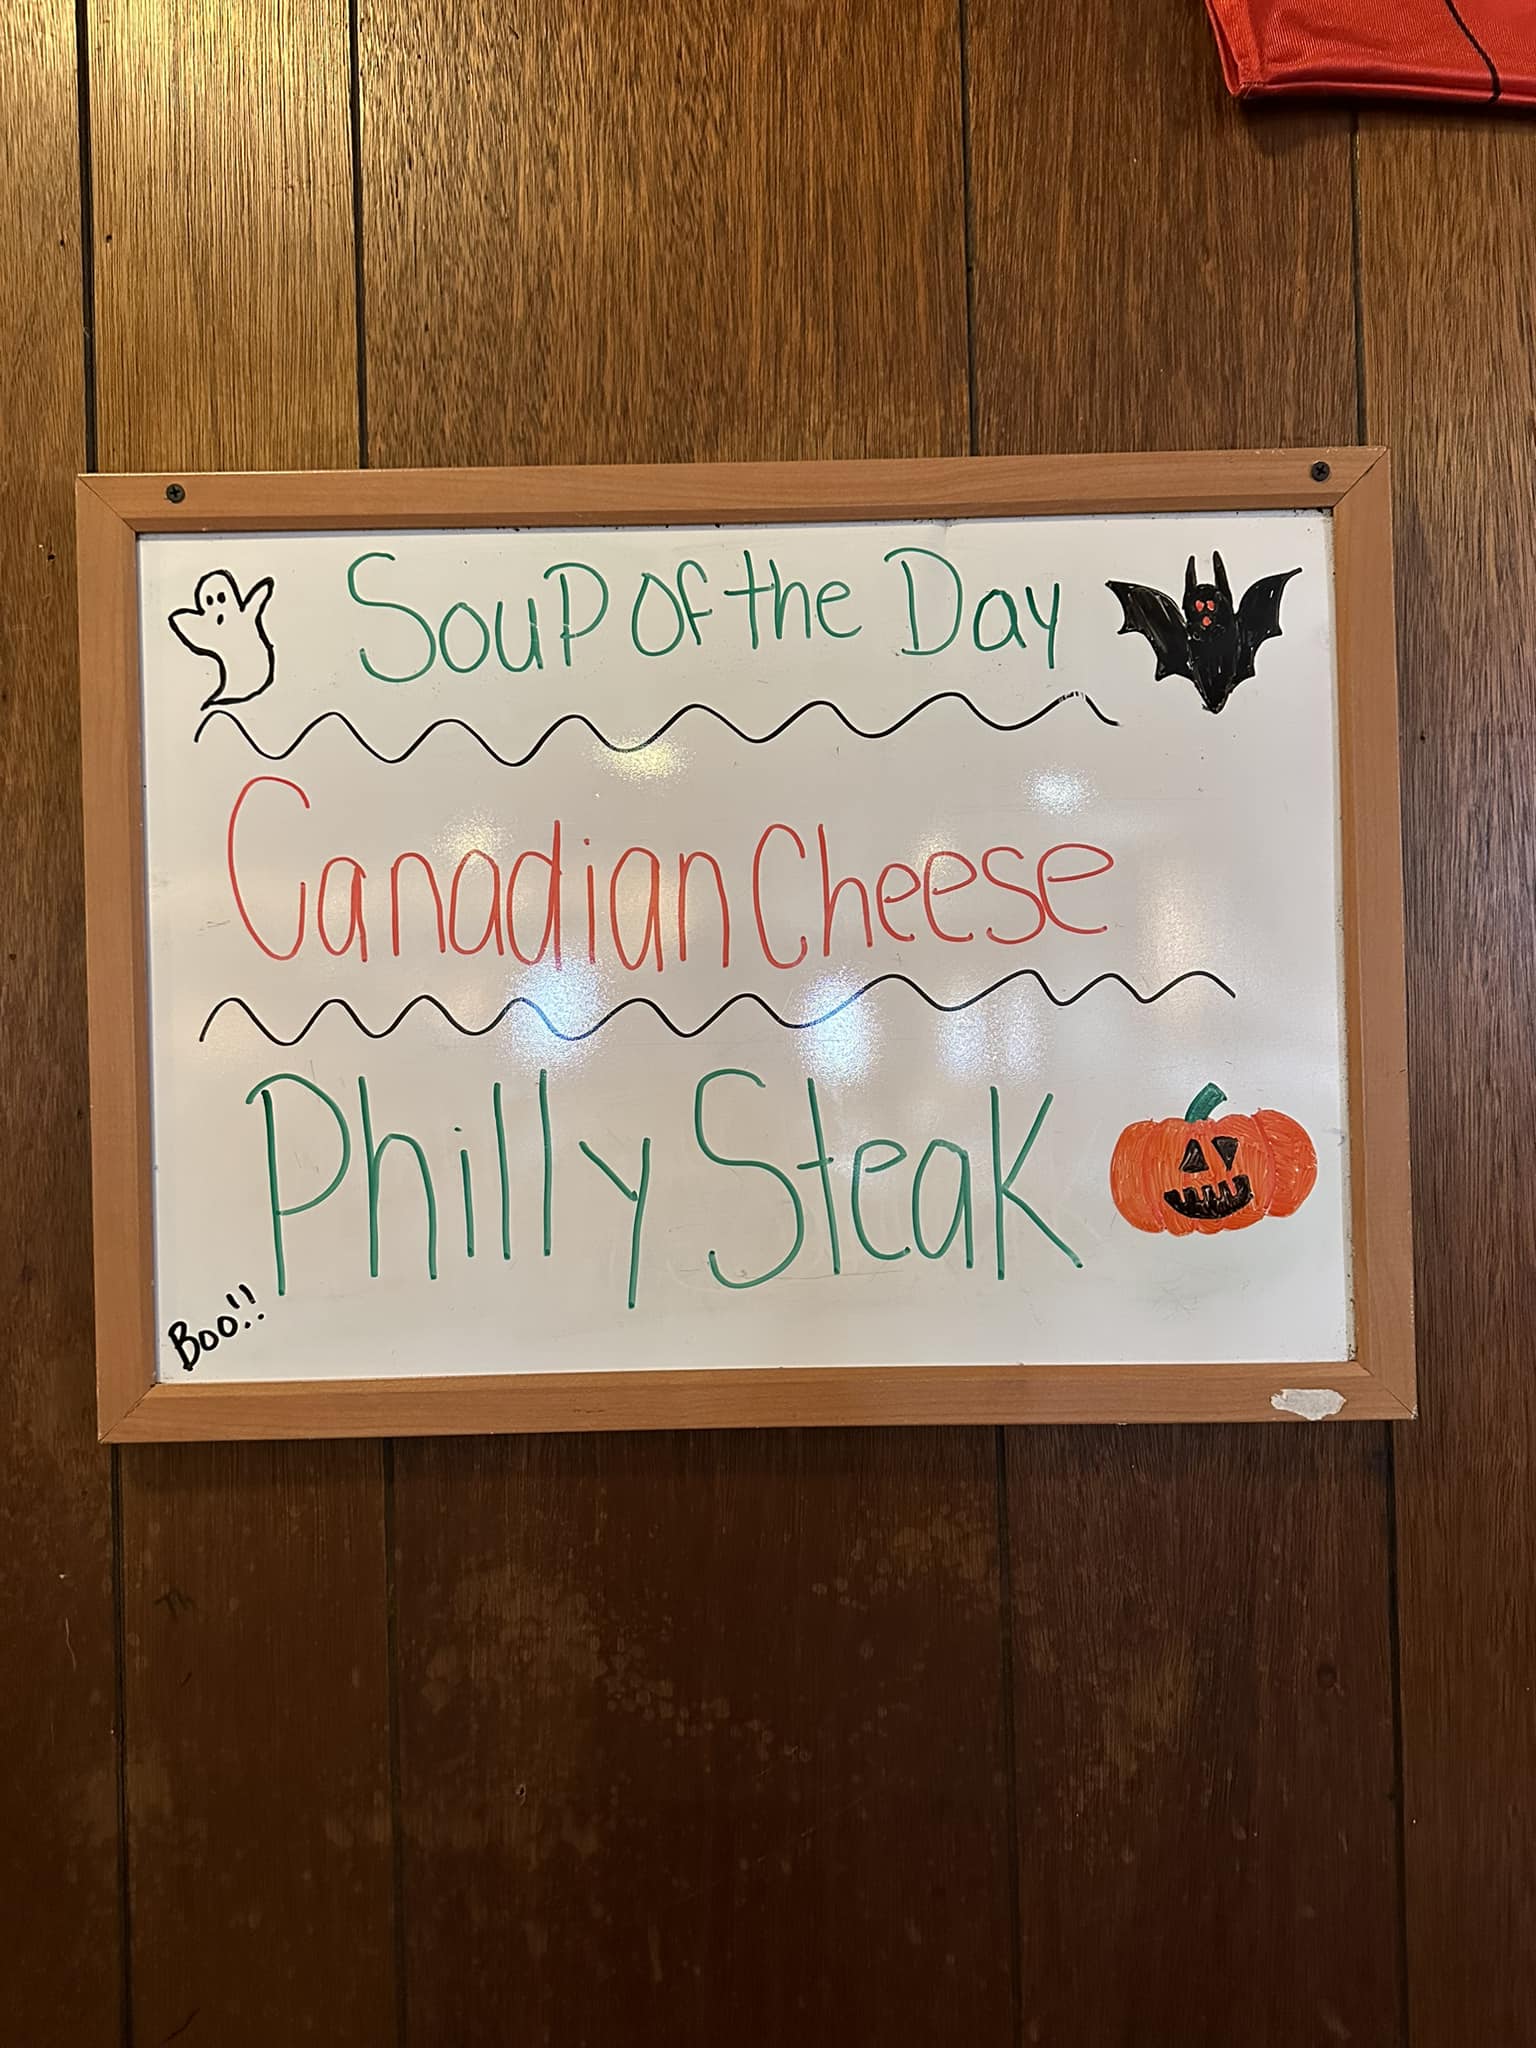 Soup of the Day
Canadian Cheese
Philly Steak
Boo!!